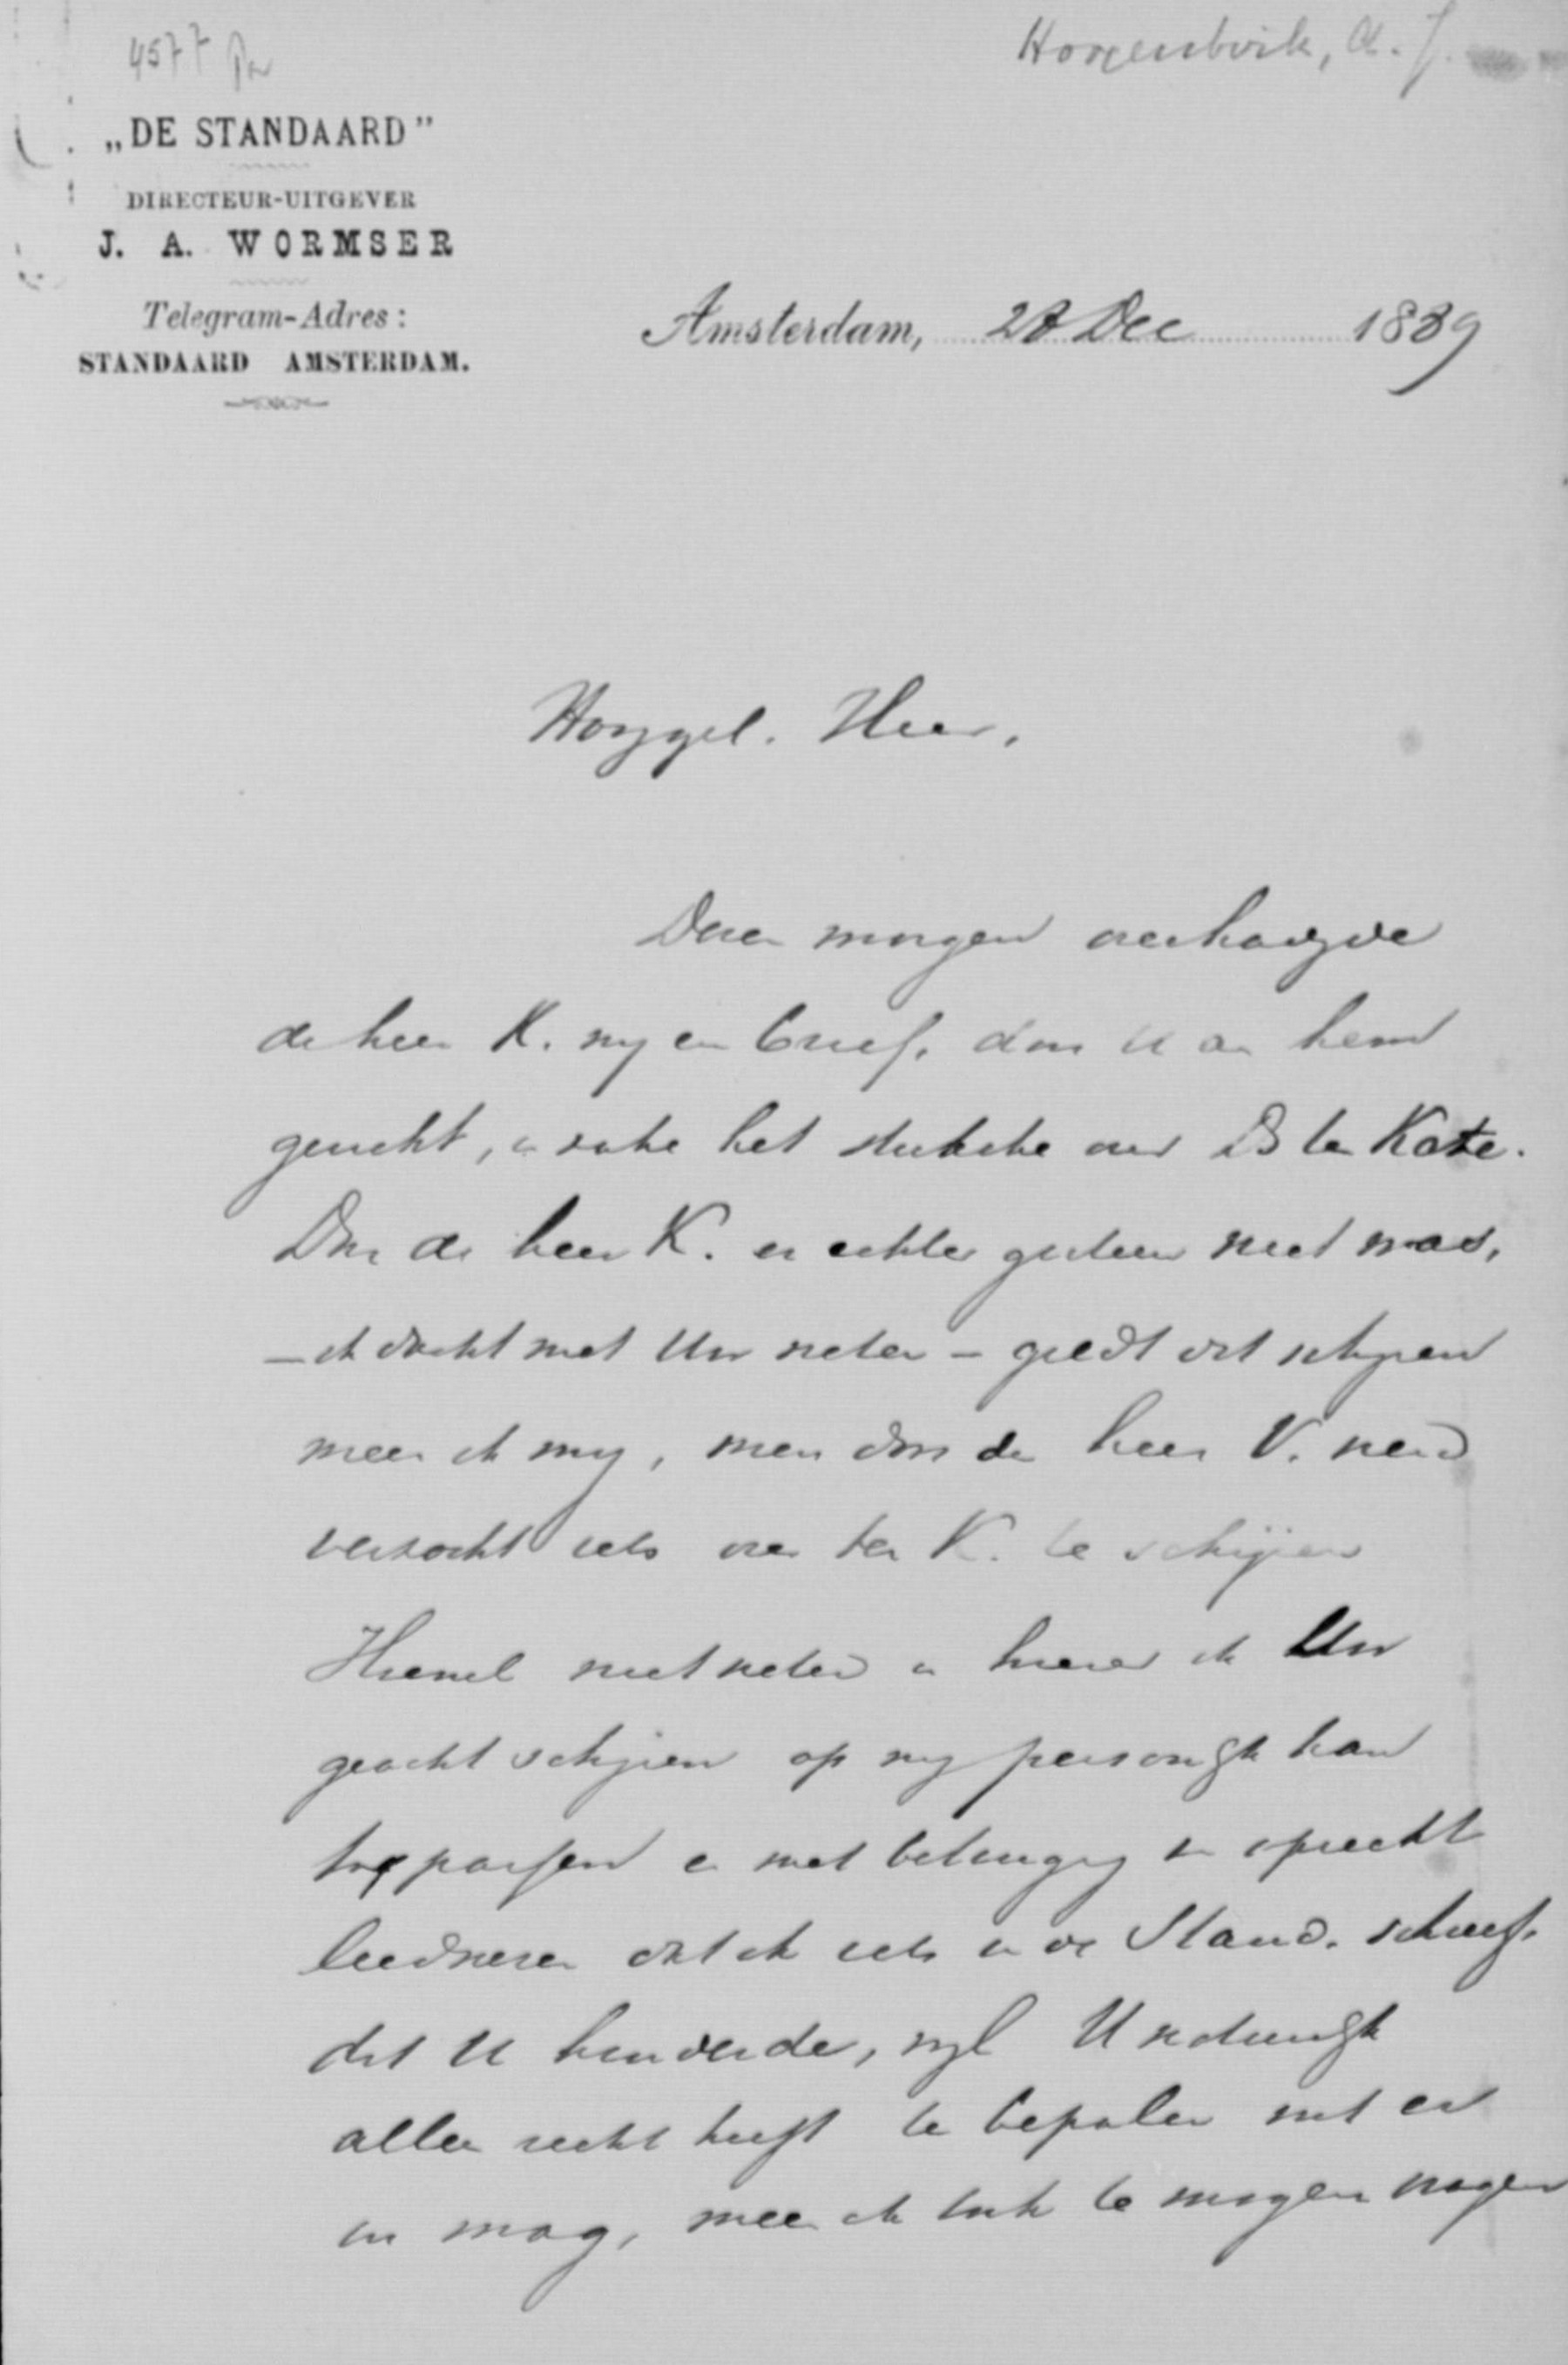 4577
Hoogenbirk, A. J.
„DE STANDAARD”
DIRECTEUR-UITGEVER
J. A. WORMSER
Telegram-Adres:
STANDAARD AMSTERDAM.
Amsterdam, 28 Dec 1889
Hooggel. Heer,
Dezen morgen overhandigde
de heer K. mij een brief, door U aan hem
gericht, in zake het stukske over Ds ten Kate.
Daar de heer K. er echter gisteren niet was,
– ik dacht met Uw weten – geldt dit schrijven
meen ik mij, men door de heer V. werd
verzocht iets over ten K. te schrijven
Hoewel niet wetend in hoever ik Uw
geacht schrijven op mij persoonlijk kan
toepassen en met betuiging van oprecht
leedwezen dat ik iets in de Stand. schreef,
dat U hinderde, wijl U natuurlijk
alleen recht heeft te bepalen wat er
in mag, meen ik toch te mogen vragen